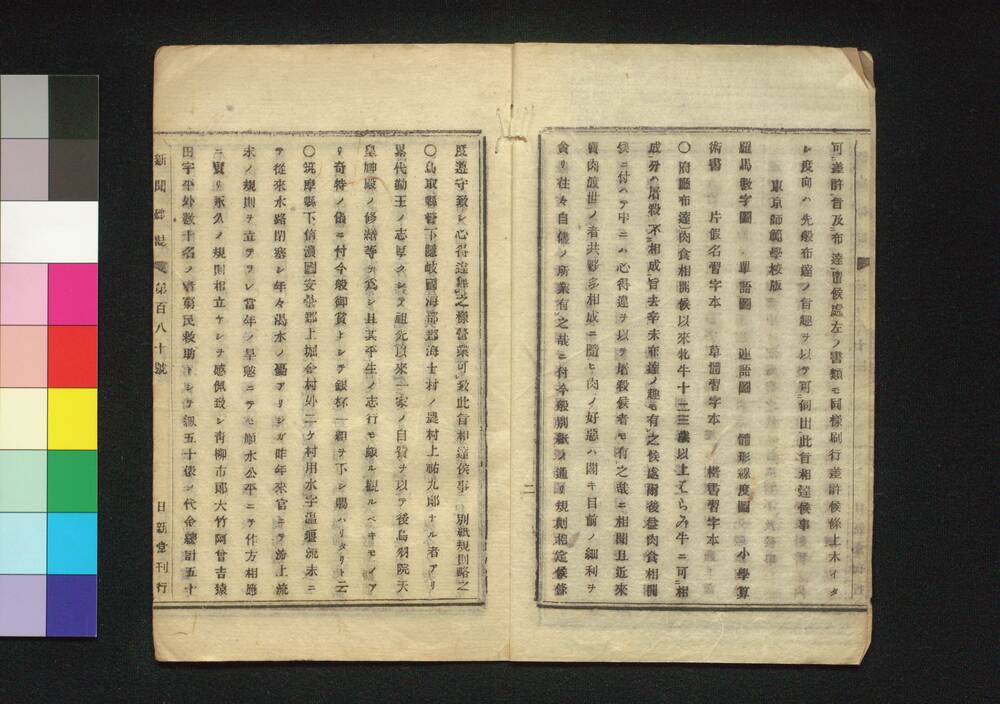 可差許旨及布達置候處左ノ書類モ同樣刷行差許候條上木イタ
シ度向ハ先般布達ノ旨趣ヲ以テ可伺出此旨相達候事
東京師範學校版
羅馬數字圖 單語圖 連語圖 體形線度圖 小學算
術書 片假名習字本 草體習字本 楷書習字本
〇府廳布達肉食相開候以來牝牛十二三歲以上てくらみ牛ニ可相
成分ハ屠殺不相成旨去辛未布達ノ趣モ有之候處爾後益肉食相開
候ニ付ハア中ニハ心得違ヲ以テ屠殺候者モ有之哉ニ相聞且近來
賣肉渡世ノ者共夥多相成ニ隨ヒ肉ノ好惡ハ閣キ目前ノ細利ヲ
貪リ往々自儘ノ所業有之哉ニ付今般別紙ノ通リ規則相定候條
二
度遵守致シ心得違無之樣營業可致此旨相達候事 別紙規則略之
〇鳥取縣管下隱岐國海部郡海士村ノ農村上祐九郎ナル者アリ
累代勤王ノ志厚クシテ祖先以來一家ノ自費ヲ以テ後鳥羽院天
皇御廟ノ修繕等ヲ爲シ且其平生ノ志行モ頗ル觀ルベキモノア
リ奇特ノ儀ニ付今般御賞トシテ銀杯一組ヲ下シ賜ハリタリト云
〇筑摩縣下信濃國安曇郡上堀金村外二ケ村用水字温堰流末ニ
テ從來水路閉塞シ年々渇水ノ憂アリシガ昨年來官ニテ滂上流
水ノ規則ヲ立テラレ當年ノ旱魃ニテモ順水公平ニテ作方相應
ニ實リ永久ノ規則相立ケレヲ感佩致シ青柳市郎大竹阿曾吉猿
田字平外數十名ノ者窮民救助トシテ籾五十俵ノ代金總計五十
新聞雜誌 第百八十號 日新堂刊行